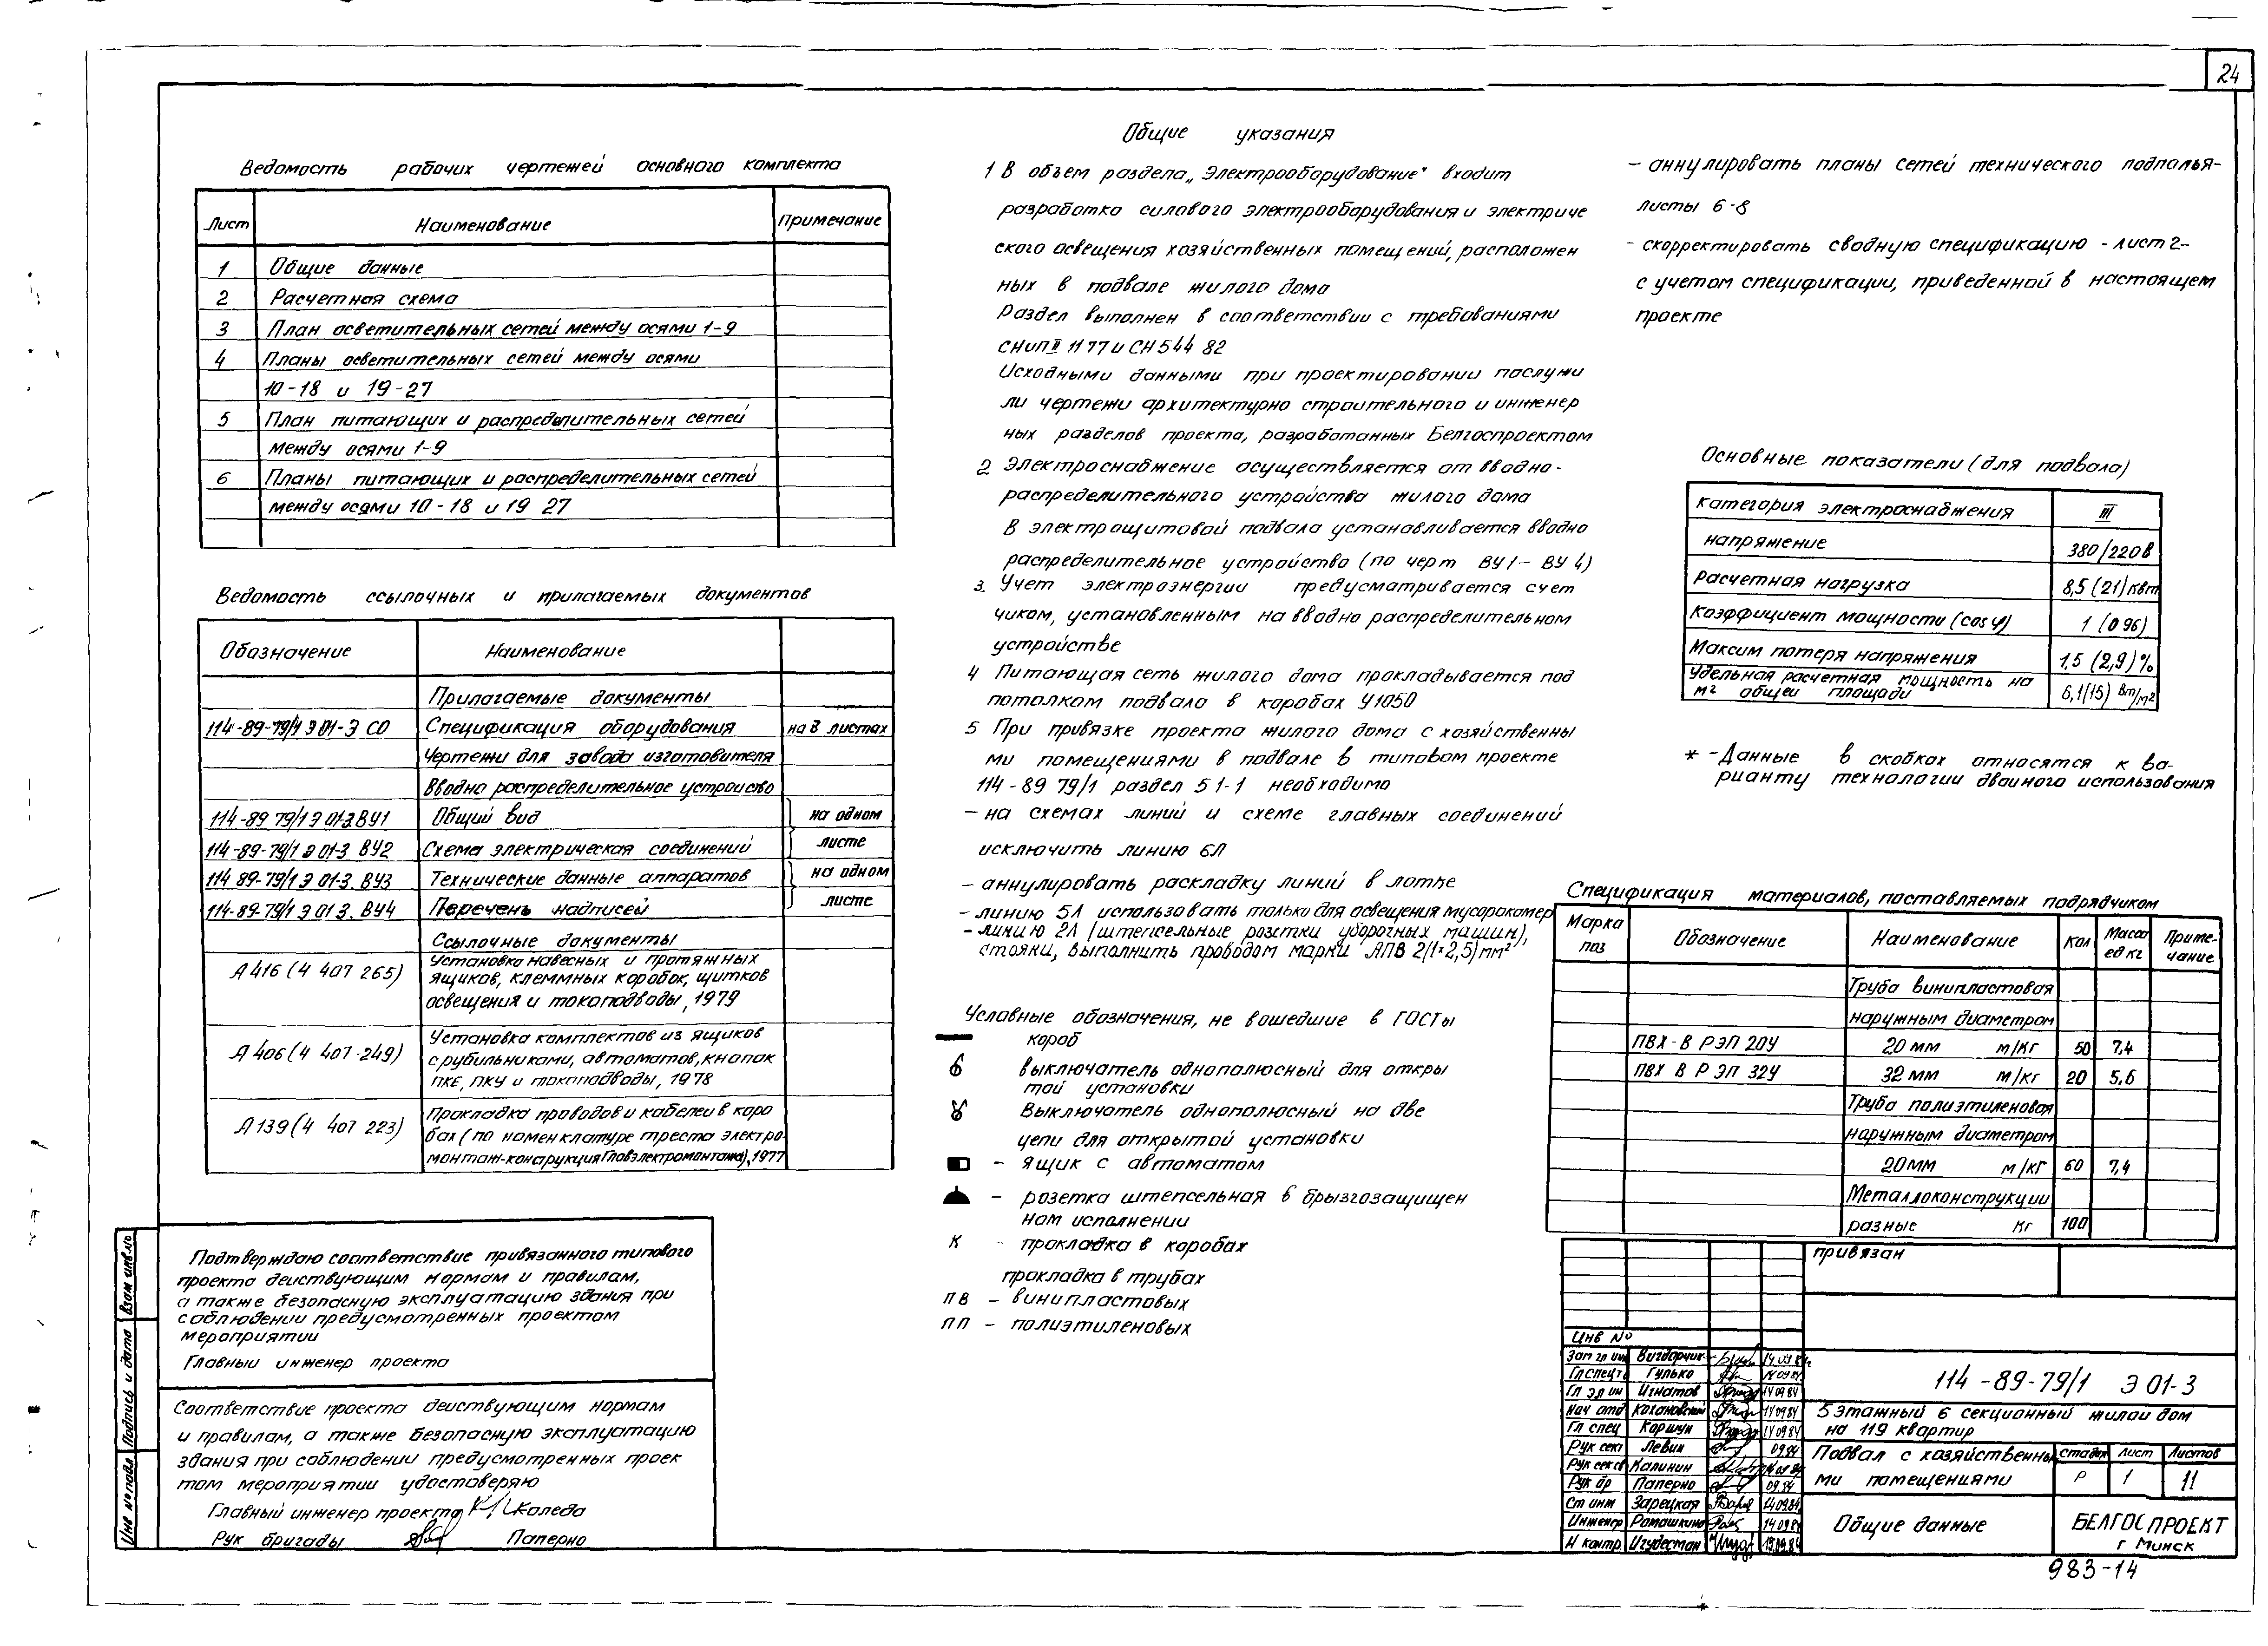 24
Ведомость рабочих чертежей основного комплекта
Лист Наименование Примечание
1 Общие данные
2 Расчетная схема
3 План осветительных сетей между осями 1-9
4 Планы осветительных сетей между осями
10-18 и 19-27
5 План питающих и распределительных сетей
между осями 1-9
6 Планы питающих и распределительных сетей
между осями 10-18 и 19 27
Ведомость ссылочных и прилагаемых документов
Обозначение Наименование
Прилагаемые документы
114-89-79/1 Э 01-Э СО Спецификация оборудования на 3 листах
Чертежи для завода изготовителя
Вводно распределительное устроиство
114-89 79/1 Э 01-3 ВУ1 Общий вид на одном
114-89-79/1 Э 01-3 ВУ2 Схема электрическая соединений листе
114 89-79/1 Э 01-3. ВУ3 Технические данные аппаратов на одном
114-89-79/1 Э 01 3. ВУ4 Перечень надписей листе
Ссылочные документы
А416 (4 407 265) Установка навесных и протяжных
ящиков, клеммных коробок, щитков
освещения и токоподводы, 1979
А 406 (4 407-249) Установка комплектов из ящиков
с рубильниками, автоматов, кнопок
ПКЕ, ПКУ и токоподводы, 1978
А139 (4 407 223) Прокладка проводов и кабелеи в коро
бах (по номенклатуре треста электро-
монтаж-конструкция Главэлектромонтажа), 1977
Подтверждаю соответствие привязанного типового
проекта деиствующим нормам и правилам,
а также безопасную эксплуатацию здания при
соблюдении предусмотренных проектом
мероприятии
Главныи инженер проекта
Соответствие проекта деиствующим нормам
и правилам, а также безопасную эксплуатацию
здания при соблюдении предусмотренных проек
том мероприятии удостоверяю
Главный инженер проекта Коледа
Рук бригады Паперно
Взам инв.№
Подпись и дата
Инв № подл
Общие указания
1 В объем раздела „Электрооборудование" входит
разработка силового электрооборудования и электриче
ского освещения хозяйственных помещений, расположен
ных в подвале жилого дома
Раздел выполнен в соответствии с требованиями
СНиП II 11 77 и СН 544 82
Исходными данными при проектировании послужи
ли чертежи архитектурно строительного и инженер
ных разделов проекта, разработанных Белгоспроектом
2 Электроснабжение осуществляется от вводно-
распределительного устройства жилого дома
В электрощитовой подвала устанавливается вводно
распределительное устройство (по черт ВУ1- ВУ 4)
3. Учет электроэнергии предусматривается счет
чиком, установленным на вводно распределительном
устройстве
4 Питающая сеть жилого дома прокладывается под
потолком подвала в коробах У1050
5 При привязке проекта жилого дома с хозяйственны
ми помещениями в подвале в типовом проекте
114-89 79/1 раздел 5 1-1 необходимо
- на схемах линий и схеме главных соединений
исключить линию 6Л
- аннулировать раскладку линий в лотке
- линию 5Л использовать только для освещения мусорокамер
- линию 2Л (штепсельные розетки уборочных машин),
стояки, выполнить проводом марки АПВ 2(1×2,5)мм²
Условные обозначения, не вошедшие в ГОСТы
короб
выключатель однополюсный для откры
той установки
Выключатель однополюсный на две
цепи для открытой установки
- ящик с автоматом
- розетка штепсельная в брызгозащищен
ном исполнении
К - прокладка в коробах
прокладка в трубах
ПВ - винипластовых
ПП - полиэтиленовых
- аннулировать планы сетей технического подполья-
листы 6-8
- скорректировать сводную спецификацию - лист 2-
с учетом спецификации, приведенной в настоящем
проекте
Основные показатели (для подвала)
Категория электроснабжения III
напряжение 380/220в
Расчетная нагрузка 8,5 (21) квт
Коэффициент мощности (cos φ) 1 (0 96)
Максим потеря напряжения 1,5 (2,9) %
Удельная расчетная мощность на
м² общей площади 6,1(15) Вт/м²
* - Данные в скобках относятся к ва-
рианту технологии двоиного использования
Спецификация материалов, поставляемых подрядчиком
Марка поз Обозначение Наименование Кол Масса ед кг Примечание
Труба винипластовая
наружным диаметром
ПВХ-В РЭП 20У 20 мм м/кг 50 7,4
ПВХ В Р ЭП 32У 32 мм м/кг 20 5,6
Труба полиэтиленовая
наружным диаметром
20мм м/кг 60 7,4
Металлоконструкции
разные кг 100
привязан
Инв №
Зам гл инж Вигдорчик 14.09.84г
Гл спец то Гулько 14.09.84
Гл эл ин Игнатов 14 09 84
Нач отд Кохановский 14 09 84
Гл спец Коршун 14 09 84
Рук сект Левин 09.84
Рук сек св Калинин
Рук бр Паперно 09.84
Ст инж Зарецкая 14.09.84
Инженер Ромашкина 14.09.84
Н контр. Игудесман 19.09.84
114-89-79/1 Э 01-3
5 этажный 6 секционный жилои дом
на 119 квартир
Подвал с хозяйственны
ми помещениями
стадия лист Листов
Р 1 11
Общие данные
БЕЛГОСПРОЕКТ
г Минск
983-14